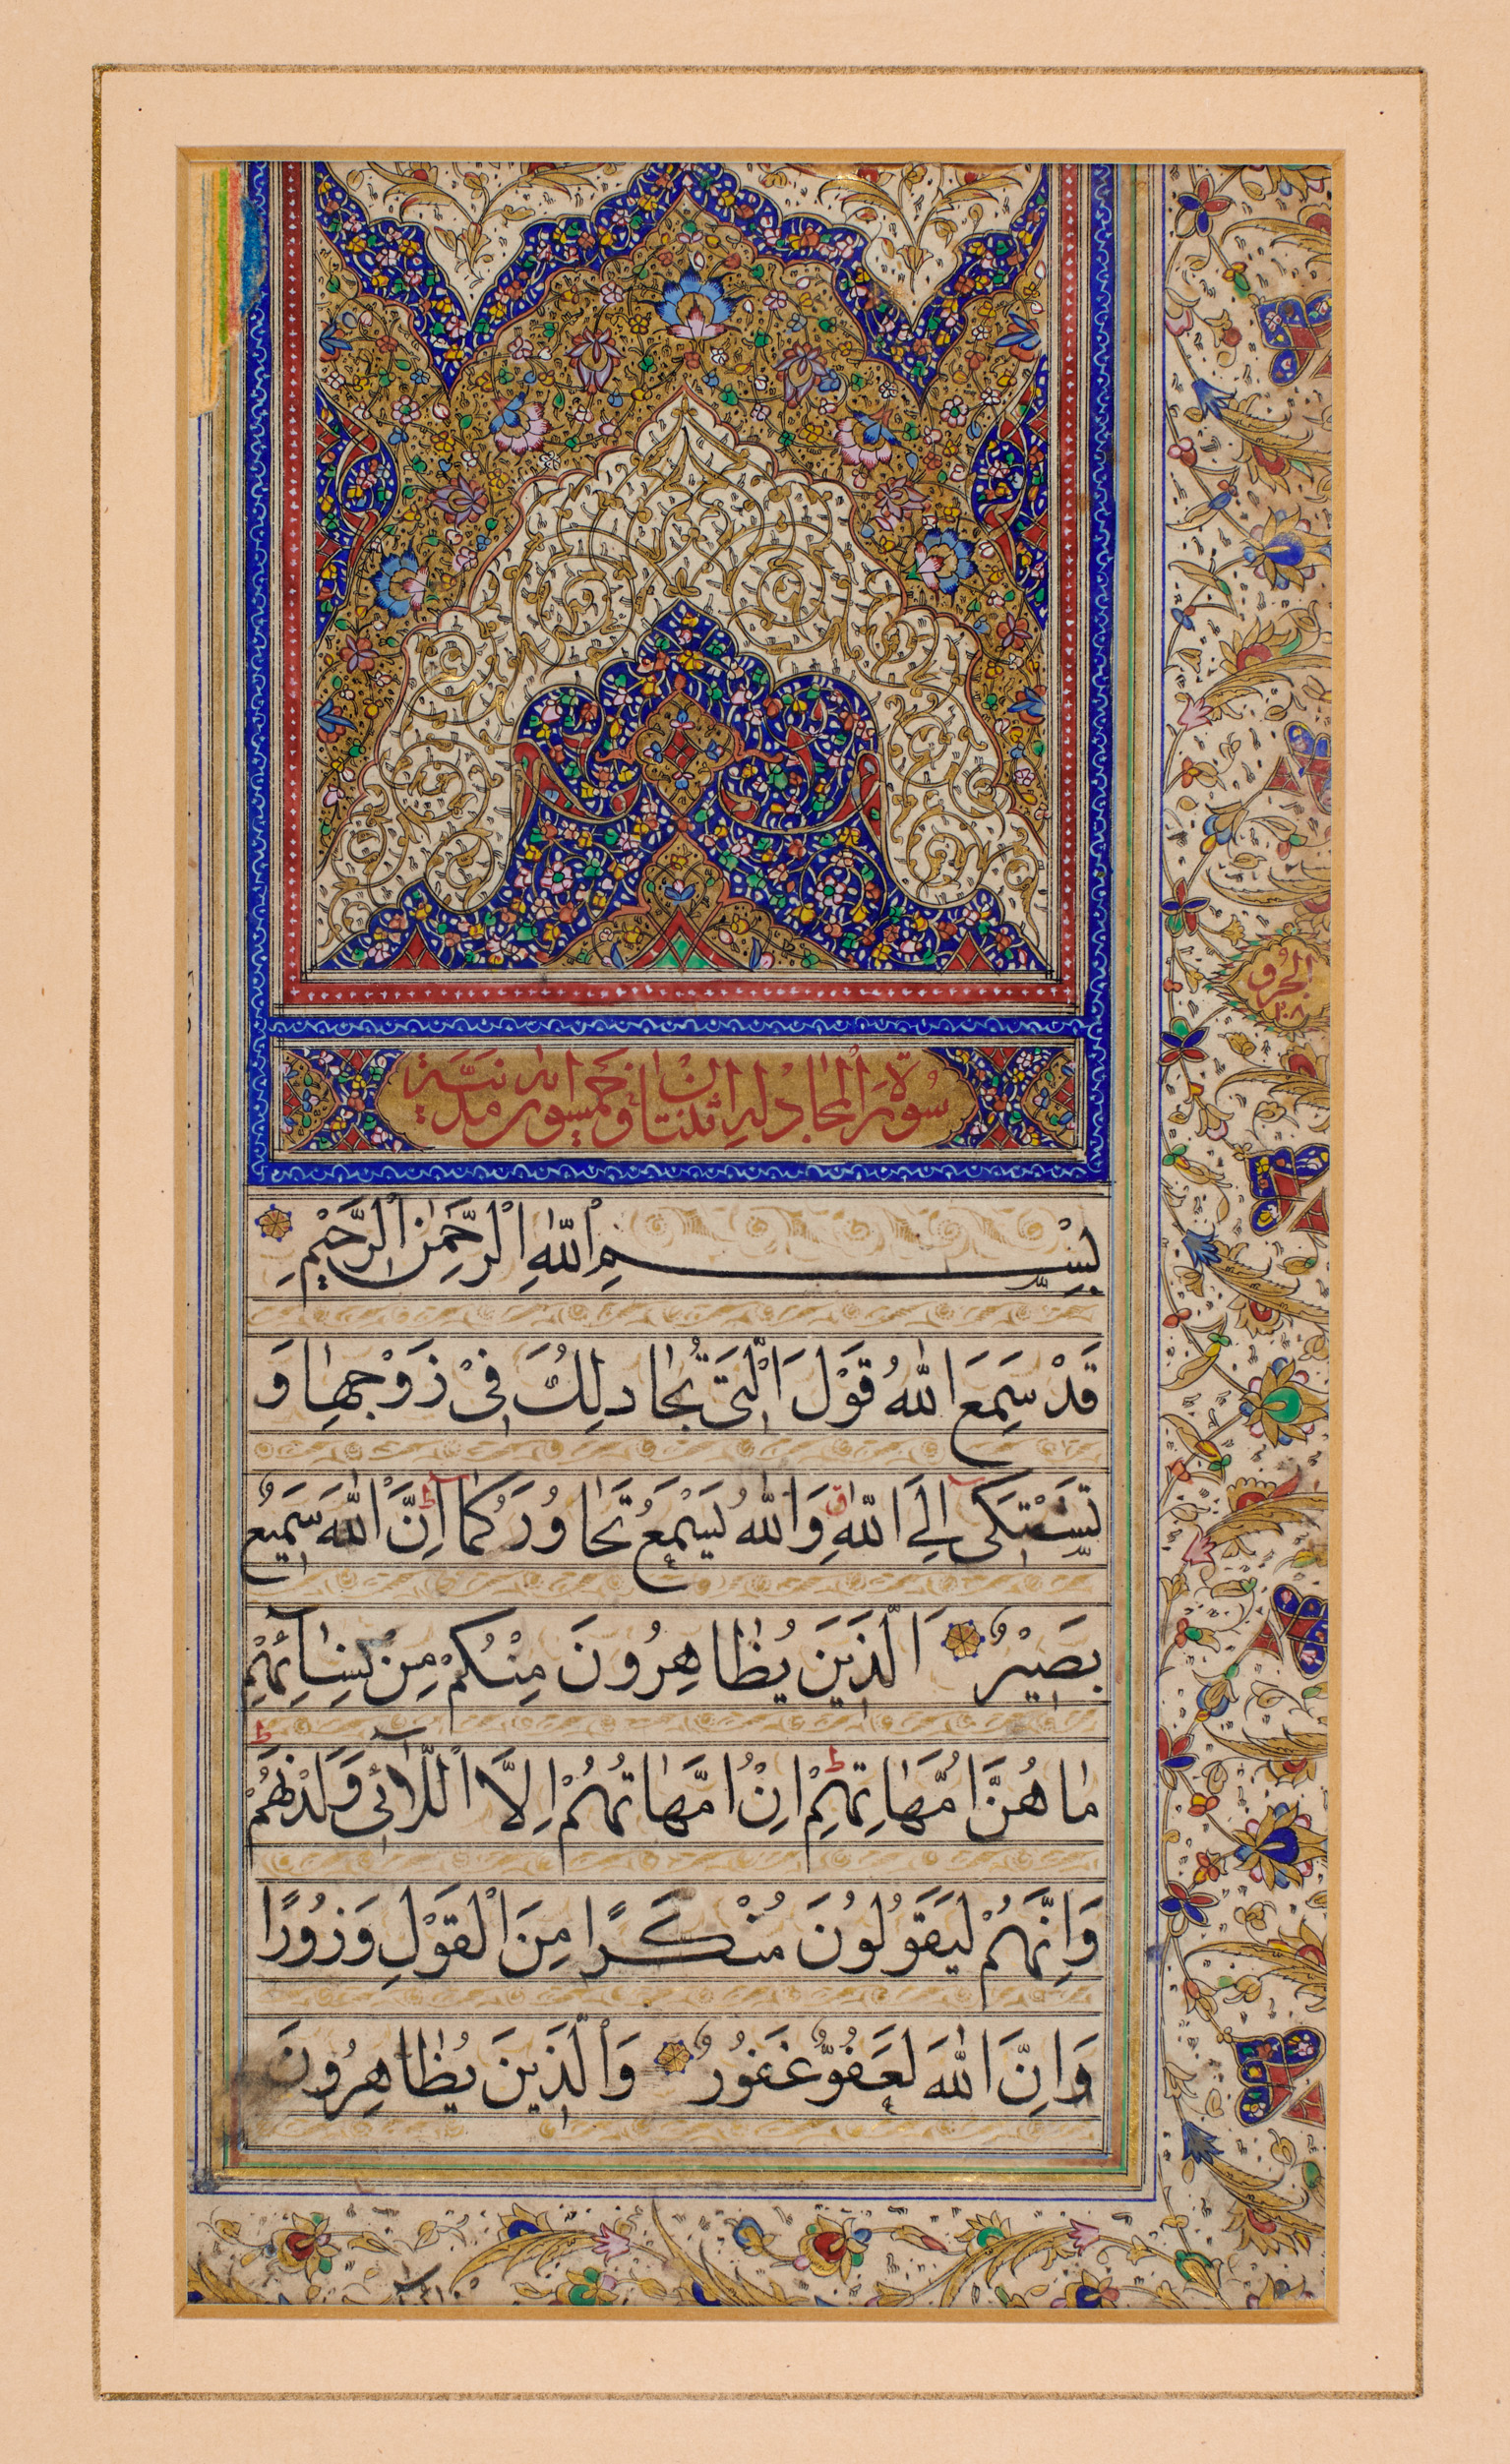 الجزو ٢٨
سُورَةُ المجادله اثنتان وخمسون ايه مدنيّة
بِسْمِ اللّٰهِ الرَّحْمٰنِ الرَّحِيْمِ
قَدْ سَمِعَ اللّٰهُ قَوْلَ الَّتِىْ تُجٰادِلُكَ فِىْ زَوْجِهٰا وَ
تَشْتَكِىْ اِلَى اللّٰهِ ق وَاللّٰهُ يَسْمَعُ تَحٰاوُرَكُمٰا ط اِنَّ اللّٰهَ سَمِيْعٌ
بَصِيْرٌ اَلَّذِيْنَ يُظٰاهِرُونَ مِنْكُمْ مِنْ نِسٰائِهِمْ
مٰا هُنَّ اُمَّهٰاتِهِمْ ط اِنْ اُمَّهٰاتُهُمْ اِلَّا اللّٰآئِىْ وَلَدْنَهُمْ ط
وَاِنَّهُمْ لَيَقُوْلُوْنَ مُنْكَرًا مِنَ الْقَوْلِ وَزُوْرًا
وَاِنَّ اللّٰهَ لَعَفُوٌّ غَفُوْرٌ وَالَّذِيْنَ يُظٰاهِرُوْنَ